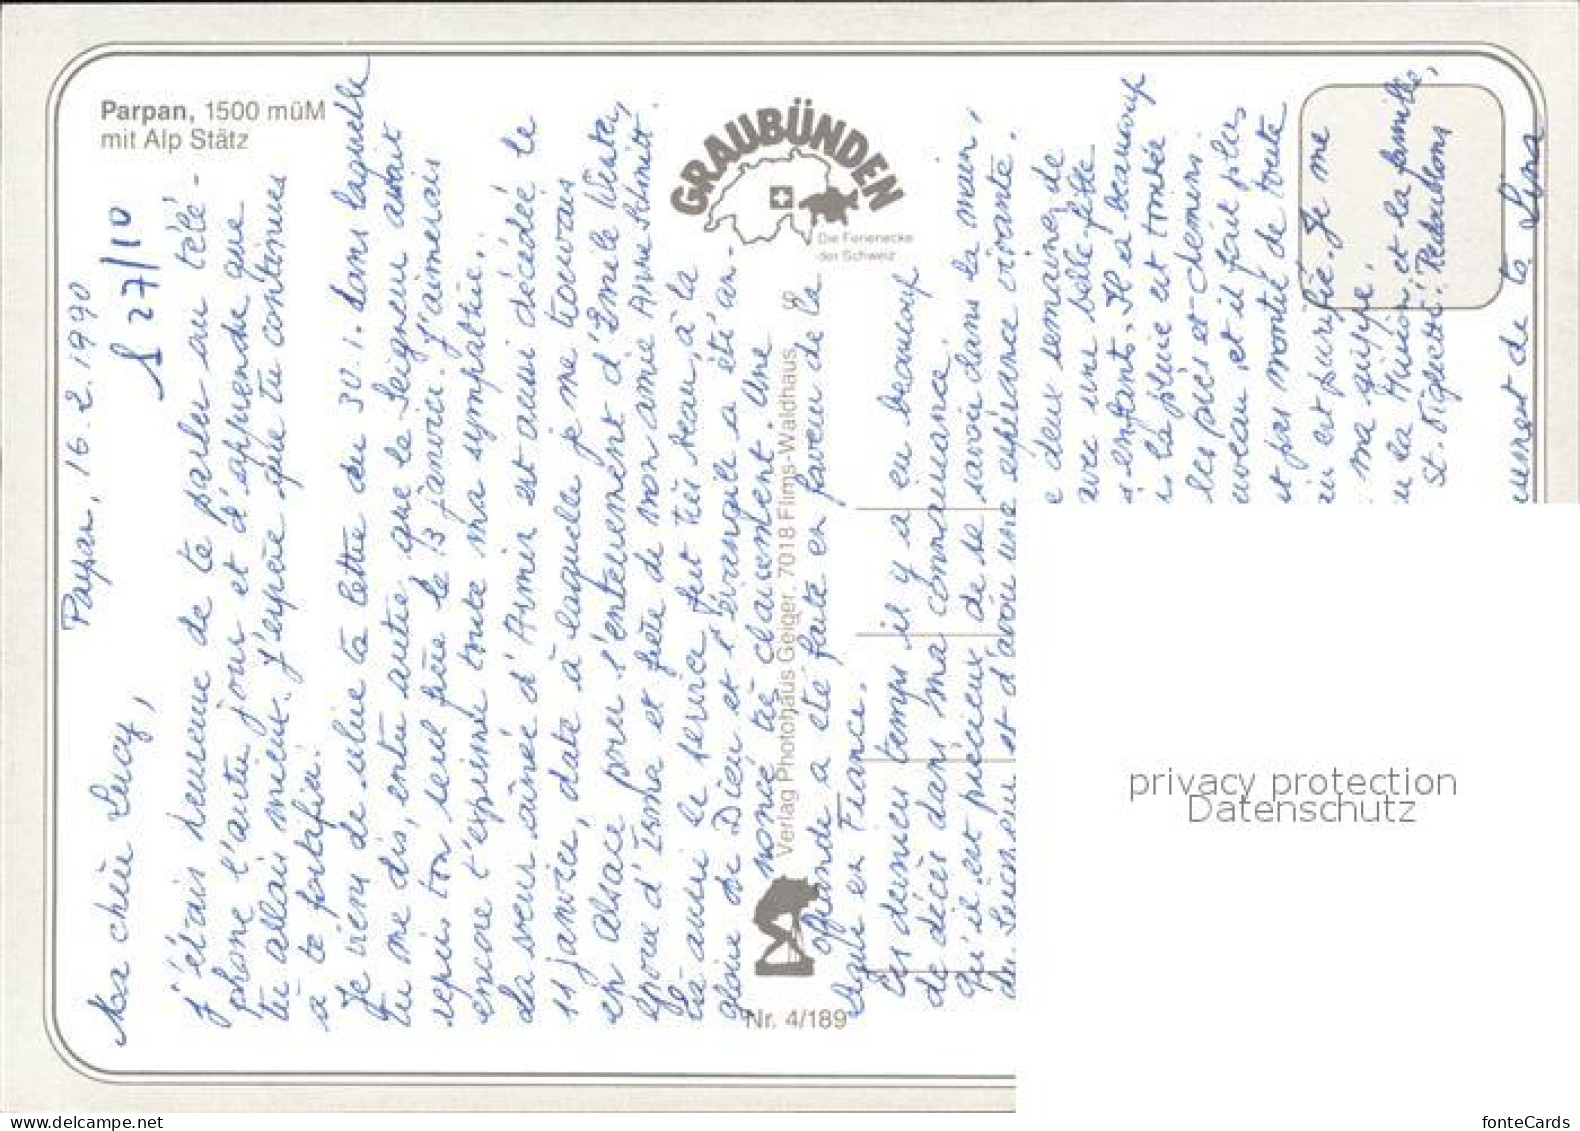 Parpan, 1500 müM
mit Alp Stätz
GRAUBÜNDEN
Die Ferienecke
der Schweiz
Verlag Photohaus Geiger, 7018 Flims-Waldhaus
Nr. 4/189
Parpan, 16.2.1990
S 27/10
Ma chère Lucy,
j'étais heureuse de te parler au télé-
phone l'autre jour et d'apprendre que
tu allais mieux. j'espère que tu continues
à te fortifier.
Je viens de relire ta lettre du 30.1. dans laquelle
tu me dis, entre autre que le Seigneur avait
repris ton seul frère le 13 janvier. j'aimerais
encore t'exprimer toute ma sympathie.
La sœur aînée d'Armin est aussi décédée le
11 janvier, date à laquelle je me trouvais
en Alsace pour l'enterrement d'Emile
époux d'Erna et frère de mon amie Anne Schmitt.
Là aussi le service fut très beau, à la
gloire de Dieu et l'évangile a été an-
noncé très clairement. Une
offrande a été faite en faveur de la
en France.
Ces derniers temps il y a eu beaucoup
de décès dans ma connaissance.
Qu'il est précieux de se savoir dans la main,
du Seigneur et d'avoir une espérance vivante.
e deux semaines de
avec une belle fête
enfants. Il a beaucoup
la pluie est tombée
les prés et chemins.
uveau, et il fait plus
et pas monté de toute
air est purifié. Je me
ma grippe.
la Mission, et la famille,
St.
ument de ta Lina
privacy protection
Datenschutz
www.delcampe.net
fonteCards